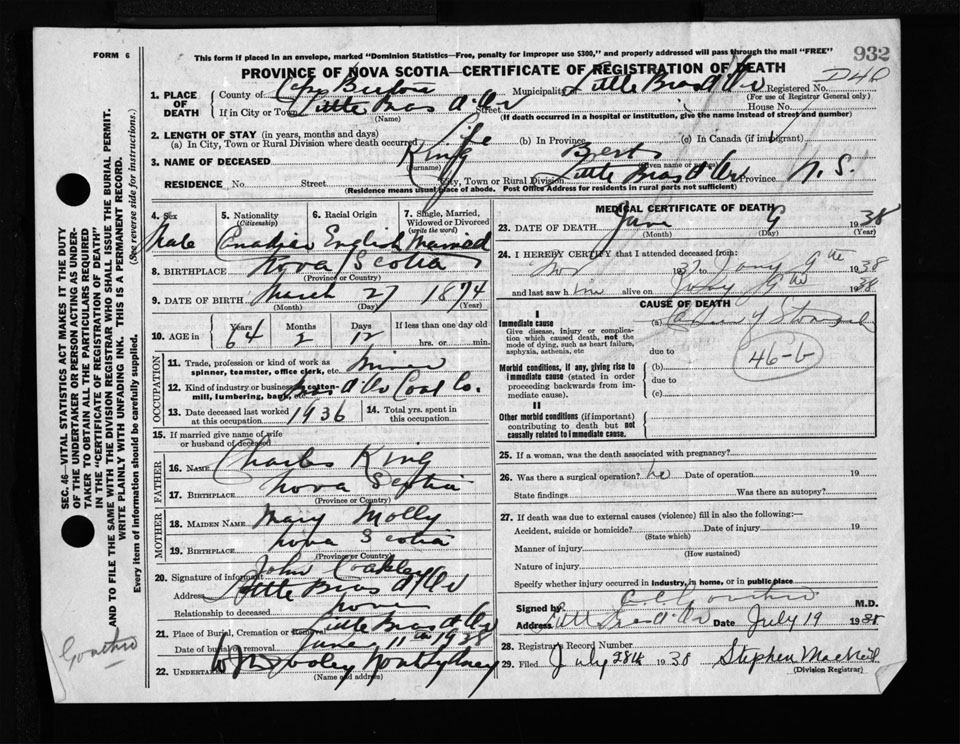 FORM 6
This form if placed in an envelope, marked "Dominion Statistics—Free, penalty for improper use $300," and properly addressed will pass through the mail "FREE"
932
PROVINCE OF NOVA SCOTIA—CERTIFICATE OF REGISTRATION OF DEATH
D40
1. PLACE OF DEATH
County of Cape Breton Municipality Little Bras d'Or Registered No.
(For use of Registrar General only)
If in City or Town Little Bras d'Or Street House No.
(Name) (If death occurred in a hospital or institution, give the name instead of street and number)
2. LENGTH OF STAY (in years, months and days)
(a) In City, Town or Rural Division where death occurred Life (b) In Province (c) In Canada (if immigrant)
3. NAME OF DECEASED King Bert
(Surname) (Given name or names)
RESIDENCE No. Street City, Town or Rural Division Little Bras d'Or Province N.S.
(Residence means usual place of abode. Post Office Address for residents in rural parts not sufficient)
4. Sex
Male
5. Nationality (Citizenship)
Canadian
6. Racial Origin
English
7. Single, Married, Widowed or Divorced (write the word)
Married
8. BIRTHPLACE Nova Scotia
(Province or Country)
9. DATE OF BIRTH March 27 1874
(Month) (Day) (Year)
10. AGE in Years Months Days If less than one day old
64 2 12 hrs. or min.
OCCUPATION
11. Trade, profession or kind of work as spinner, teamster, office clerk, etc. Miner
12. Kind of industry or business, as cotton-mill, lumbering, bank, etc. Bras d'Or Coal Co.
13. Date deceased last worked at this occupation 1936
14. Total yrs. spent in this occupation
15. If married give name of wife or husband of deceased
FATHER
16. NAME Charles King
17. BIRTHPLACE Nova Scotia
(Province or Country)
MOTHER
18. MAIDEN NAME Mary Molly
19. BIRTHPLACE Nova Scotia
(Province or Country)
20. Signature of informant John Coakley
Address Little Bras d'Or
Relationship to deceased none
21. Place of Burial, Cremation or Removal Little Bras d'Or
Date of burial or removal June 11th 1938
22. UNDERTAKER North Sydney
(Name and address)
MEDICAL CERTIFICATE OF DEATH
23. DATE OF DEATH June 9 1938
(Month) (Day) (Year)
24. I HEREBY CERTIFY that I attended deceased from:
Nov 1937 to 9th 1938
and last saw him alive on 9th 1938
CAUSE OF DEATH
I
Immediate cause
Give disease, injury or complication which caused death, not the mode of dying, such as heart failure, asphyxia, asthenia, etc
(a) of Stomach
due to
Morbid conditions, if any, giving rise to immediate cause (stated in order proceeding backwards from immediate cause).
(b)
46-b
due to
(c)
II
Other morbid conditions (if important) contributing to death but not causally related to immediate cause.
25. If a woman, was the death associated with pregnancy?
26. Was there a surgical operation? No Date of operation 19
State findings Was there an autopsy?
27. If death was due to external causes (violence) fill in also the following:—
Accident, suicide or homicide? Date of injury 19
(State which)
Manner of injury
(How sustained)
Nature of injury
Specify whether injury occurred in industry, in home, or in public place
Signed by M.D.
Address Little Bras d'Or Date July 19 1938
28. Registrar's Record Number
29. Filed July 28th 1938 Stephen MacNeil
(Division Registrar)
SEC. 46—VITAL STATISTICS ACT MAKES IT THE DUTY
OF THE UNDERTAKER OR PERSON ACTING AS UNDER-
TAKER TO OBTAIN ALL THE PARTICULARS REQUIRED
IN THE "CERTIFICATE OF REGISTRATION OF DEATH"
AND TO FILE THE SAME WITH THE DIVISION REGISTRAR WHO SHALL ISSUE THE BURIAL PERMIT.
WRITE PLAINLY WITH UNFADING INK. THIS IS A PERMANENT RECORD.
Every item of information should be carefully supplied. (See reverse side for instructions.)